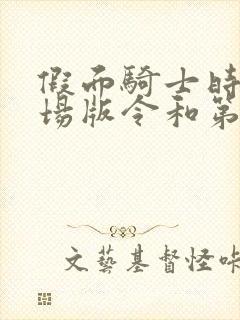 假面騎士時
場版令和第
文藝基督怪咔